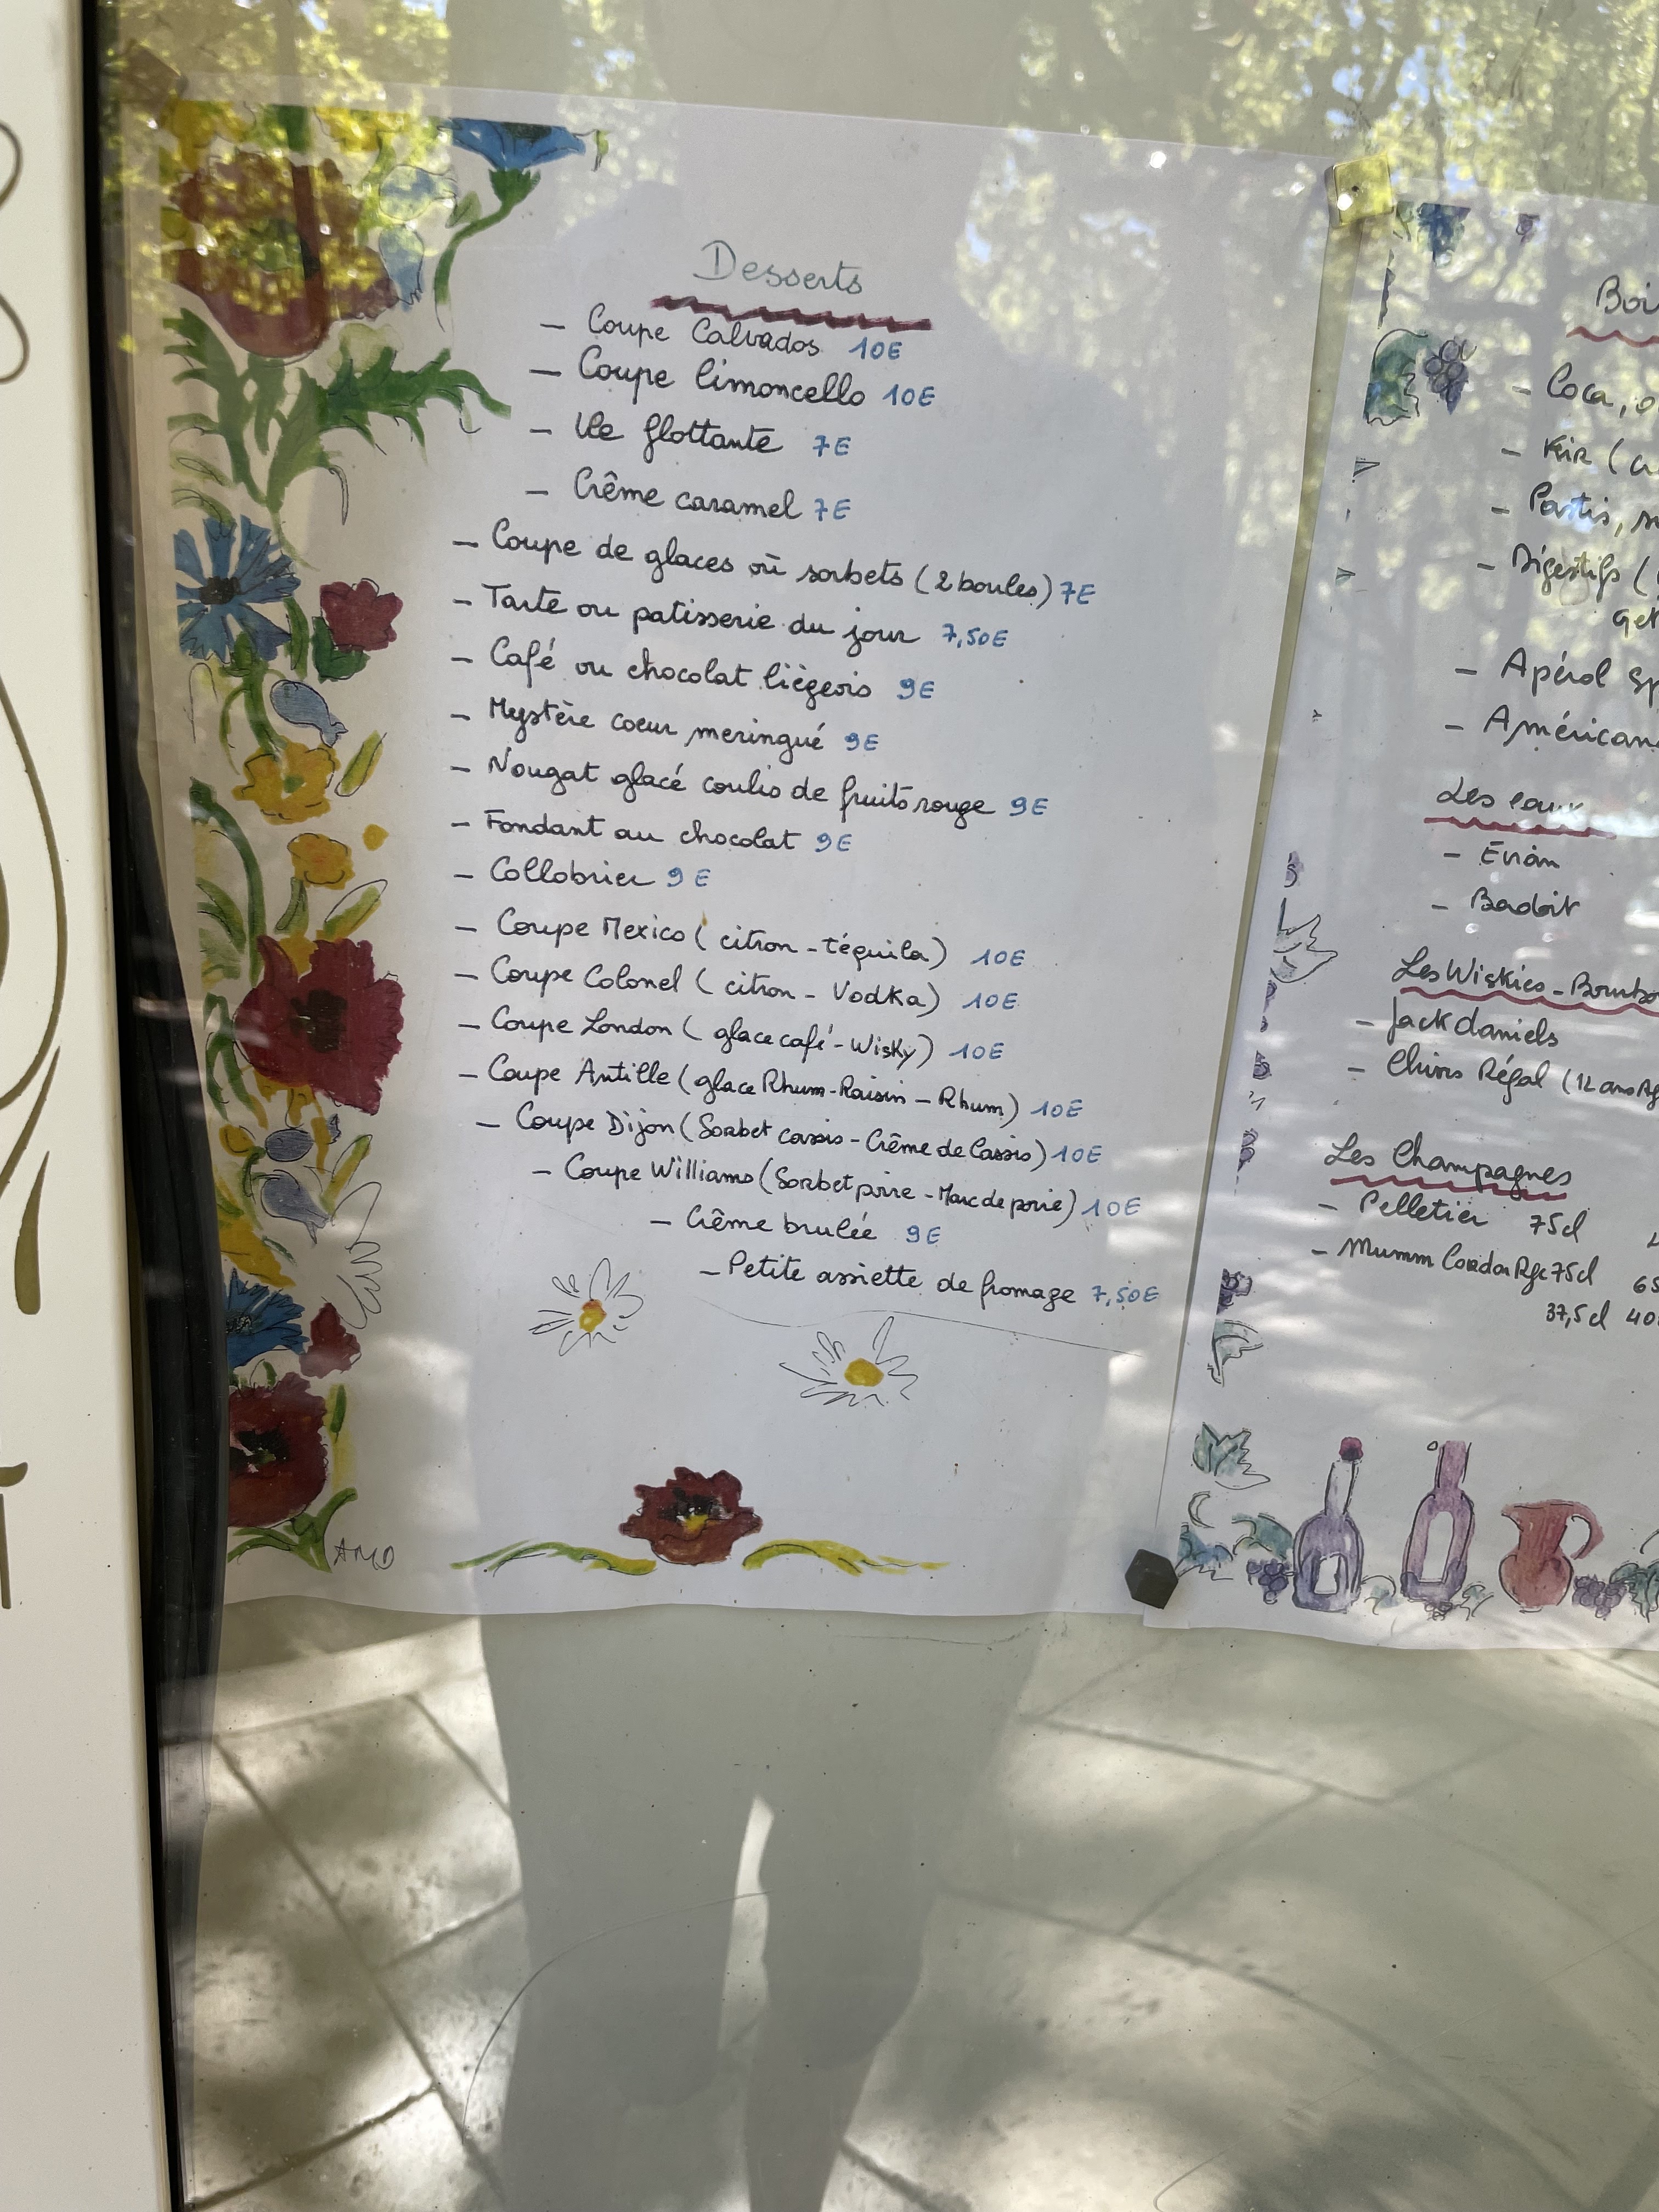 Desserts
- Coupe Calvados 10E
- Coupe limoncello 10E
- Ile flottante 7E
- Crême caramel 7E
- Coupe de glaces où sorbets (2 boules) 7E
- Tarte ou patisserie du jour 7,50E
- Café ou chocolat liègeois 9E
- Mystère coeur meringué 9E
- Nougat glacé coulis de fruits rouge 9E
- Fondant au chocolat 9E
- Collobrier 9E
- Coupe Mexico ( citron - téquila) 10E
- Coupe Colonel ( citron - Vodka) 10E
- Coupe London ( glace café - Wisky) 10E
- Coupe Antille (glace Rhum-Raisin - Rhum) 10E
- Coupe Dijon (Sorbet cassis - Crême de Cassis) 10E
- Coupe Williams (Sorbet poire - Marc de poire) 10E
- Crême brulée 9E
- Petite assiette de fromage 7,50E
AMD
Boi
- Coca, o
- Kir ( cr
- Pastis,
- Digestifs (
Get
- Apérol Sp
- Américan
Les eaux
- Evian
- Badoit
Les Wiskies - Bourbo
- Jack daniels
- Chivas Régal (12 ans Ag
Les Champagnes
- Pelletier 75cl
- Mumm Cordon Rge 75cl 65
37,5 cl 40